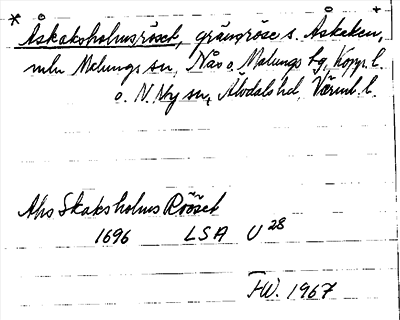 * Åskaksholmsröset, gränsröse s. Åskaken, +
mln Malungs sn, Nås o. Malungs tg, Kopp. l.
o. N. Ny sn, Älvdals hd, Värml. l.
Ahs Skaks holms Rööset
1696 LSA U28
F.W. 1967